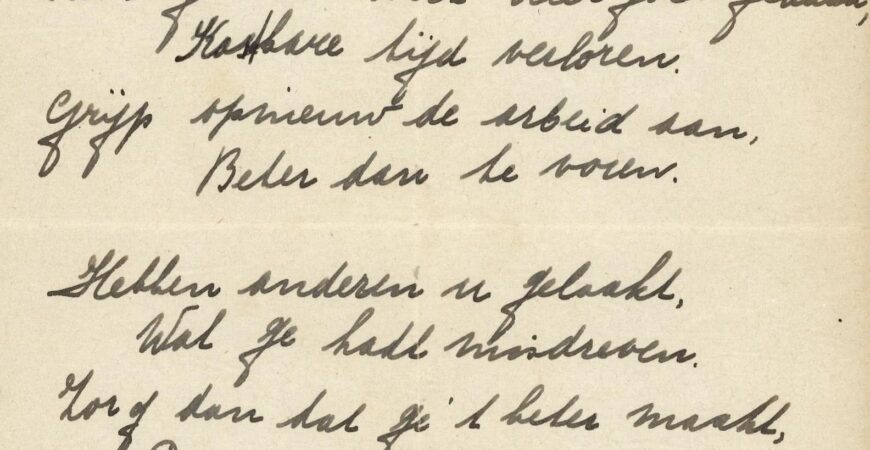 Kostbare tijd verloren.
Grijp opnieuw de arbeid aan,
Beter dan te voren.
Hebben anderen u gelaakt,
Wat ge hadt misdreven.
Zorg dan dat ge 't beter maakt,